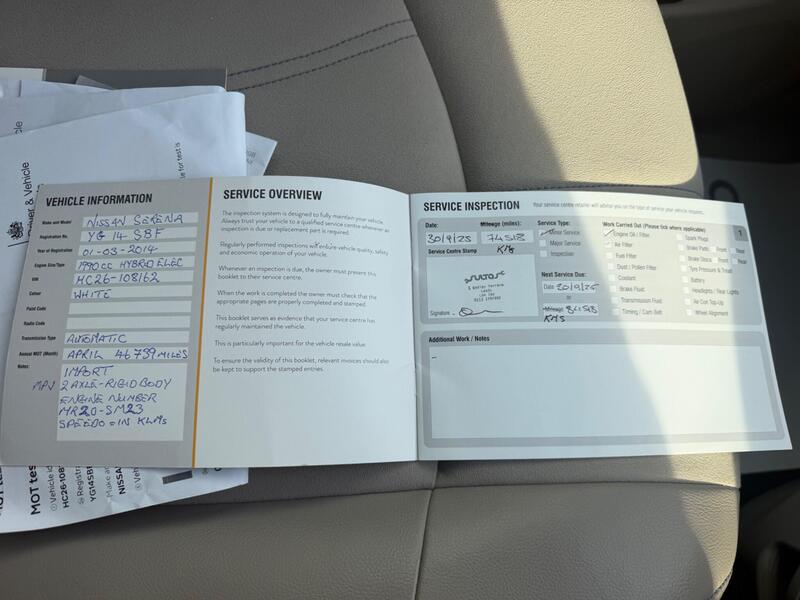 VEHICLE INFORMATION
Make and Model NISSAN SERENA
Registration No. YG 14 SBF
Year of Registration 01-03-2014
Engine Size/Type 1990cc HYBRID ELEC
VIN HC26-108162
Colour WHITE
Paint Code
Radio Code
Transmission Type AUTOMATIC
Annual MOT (Month) APRIL 46739 MILES
Notes: IMPORT
MPV 2 AXLE-RIGID BODY
ENGINE NUMBER
MR20-SM23
SPEEDO = IN KLMs
SERVICE OVERVIEW
The inspection system is designed to fully maintain your vehicle.
Always trust your vehicle to a qualified service centre whenever an
inspection is due or replacement part is required.
Regularly performed inspections will ensure vehicle quality, safety
and economic operation of your vehicle.
Whenever an inspection is due, the owner must present this
booklet to their service centre.
When the work is completed the owner must check that the
appropriate pages are properly completed and stamped.
This booklet serves as evidence that your service centre has
regularly maintained the vehicle.
This is particularly important for the vehicle resale value.
To ensure the validity of this booklet, relevant invoices should also
be kept to support the stamped entries.
SERVICE INSPECTION
Your service centre retailer will advise you on the type of service your vehicle requires.
1
Date: Mileage (miles):
30/9/25 74518
KMs
Service Centre Stamp
Leeds
Signature
Service Type:
Minor Service
Major Service
Inspection
Next Service Due:
Date
or
Mileage 84518
KMS
Work Carried Out (Please tick where applicable)
Engine Oil / Filter
Air Filter
Fuel Filter
Dust / Pollen Filter
Coolant
Brake Fluid
Transmission Fluid
Timing / Cam Belt
Spark Plugs
Brake Pads Front Rear
Brake Discs Front Rear
Tyre Pressure & Tread
Battery
Headlights / Rear Lights
Air Con Top-Up
Wheel Alignment
Additional Work / Notes
& Vehicle
MOT test
Vehicle id
HC26-108
Registra
YG14SBF
Make an
NISSAN